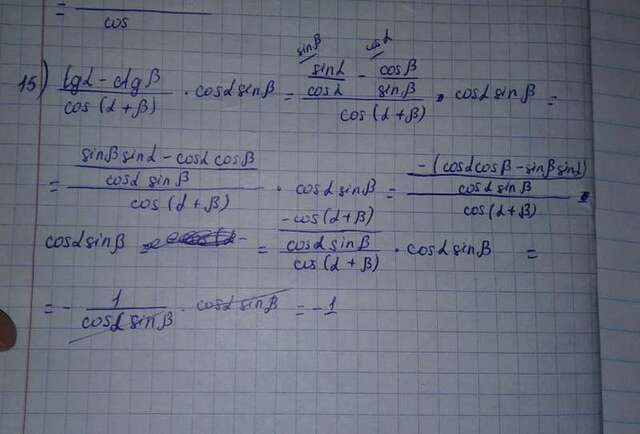 = ─── / cos
15) (tgα - ctgβ)/(cos(α+β)) · cosα sinβ = (sinβ\ sinα/cosα - cosα\ cosβ/sinβ)/(cos(α+β)) · cosα sinβ =
= ((sinβ sinα - cosα cosβ)/(cosα sinβ))/(cos(α+β)) · cosα sinβ = ((-(cosα cosβ - sinβ sinα))/(cosα sinβ))/(cos(α+β)) ·
cosα sinβ = ((-cos(α+β))/(cosα sinβ))/(cos(α+β)) · cosα sinβ =
= - 1/(cosα sinβ) · cosα sinβ = -1